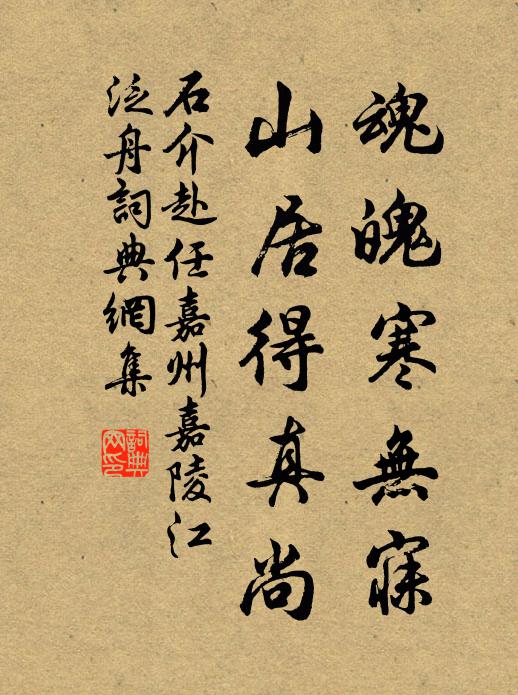 魂魄寒無寐
山居得真尚
石介赴任嘉州嘉陵江
泛舟詞典網集
詞典網印